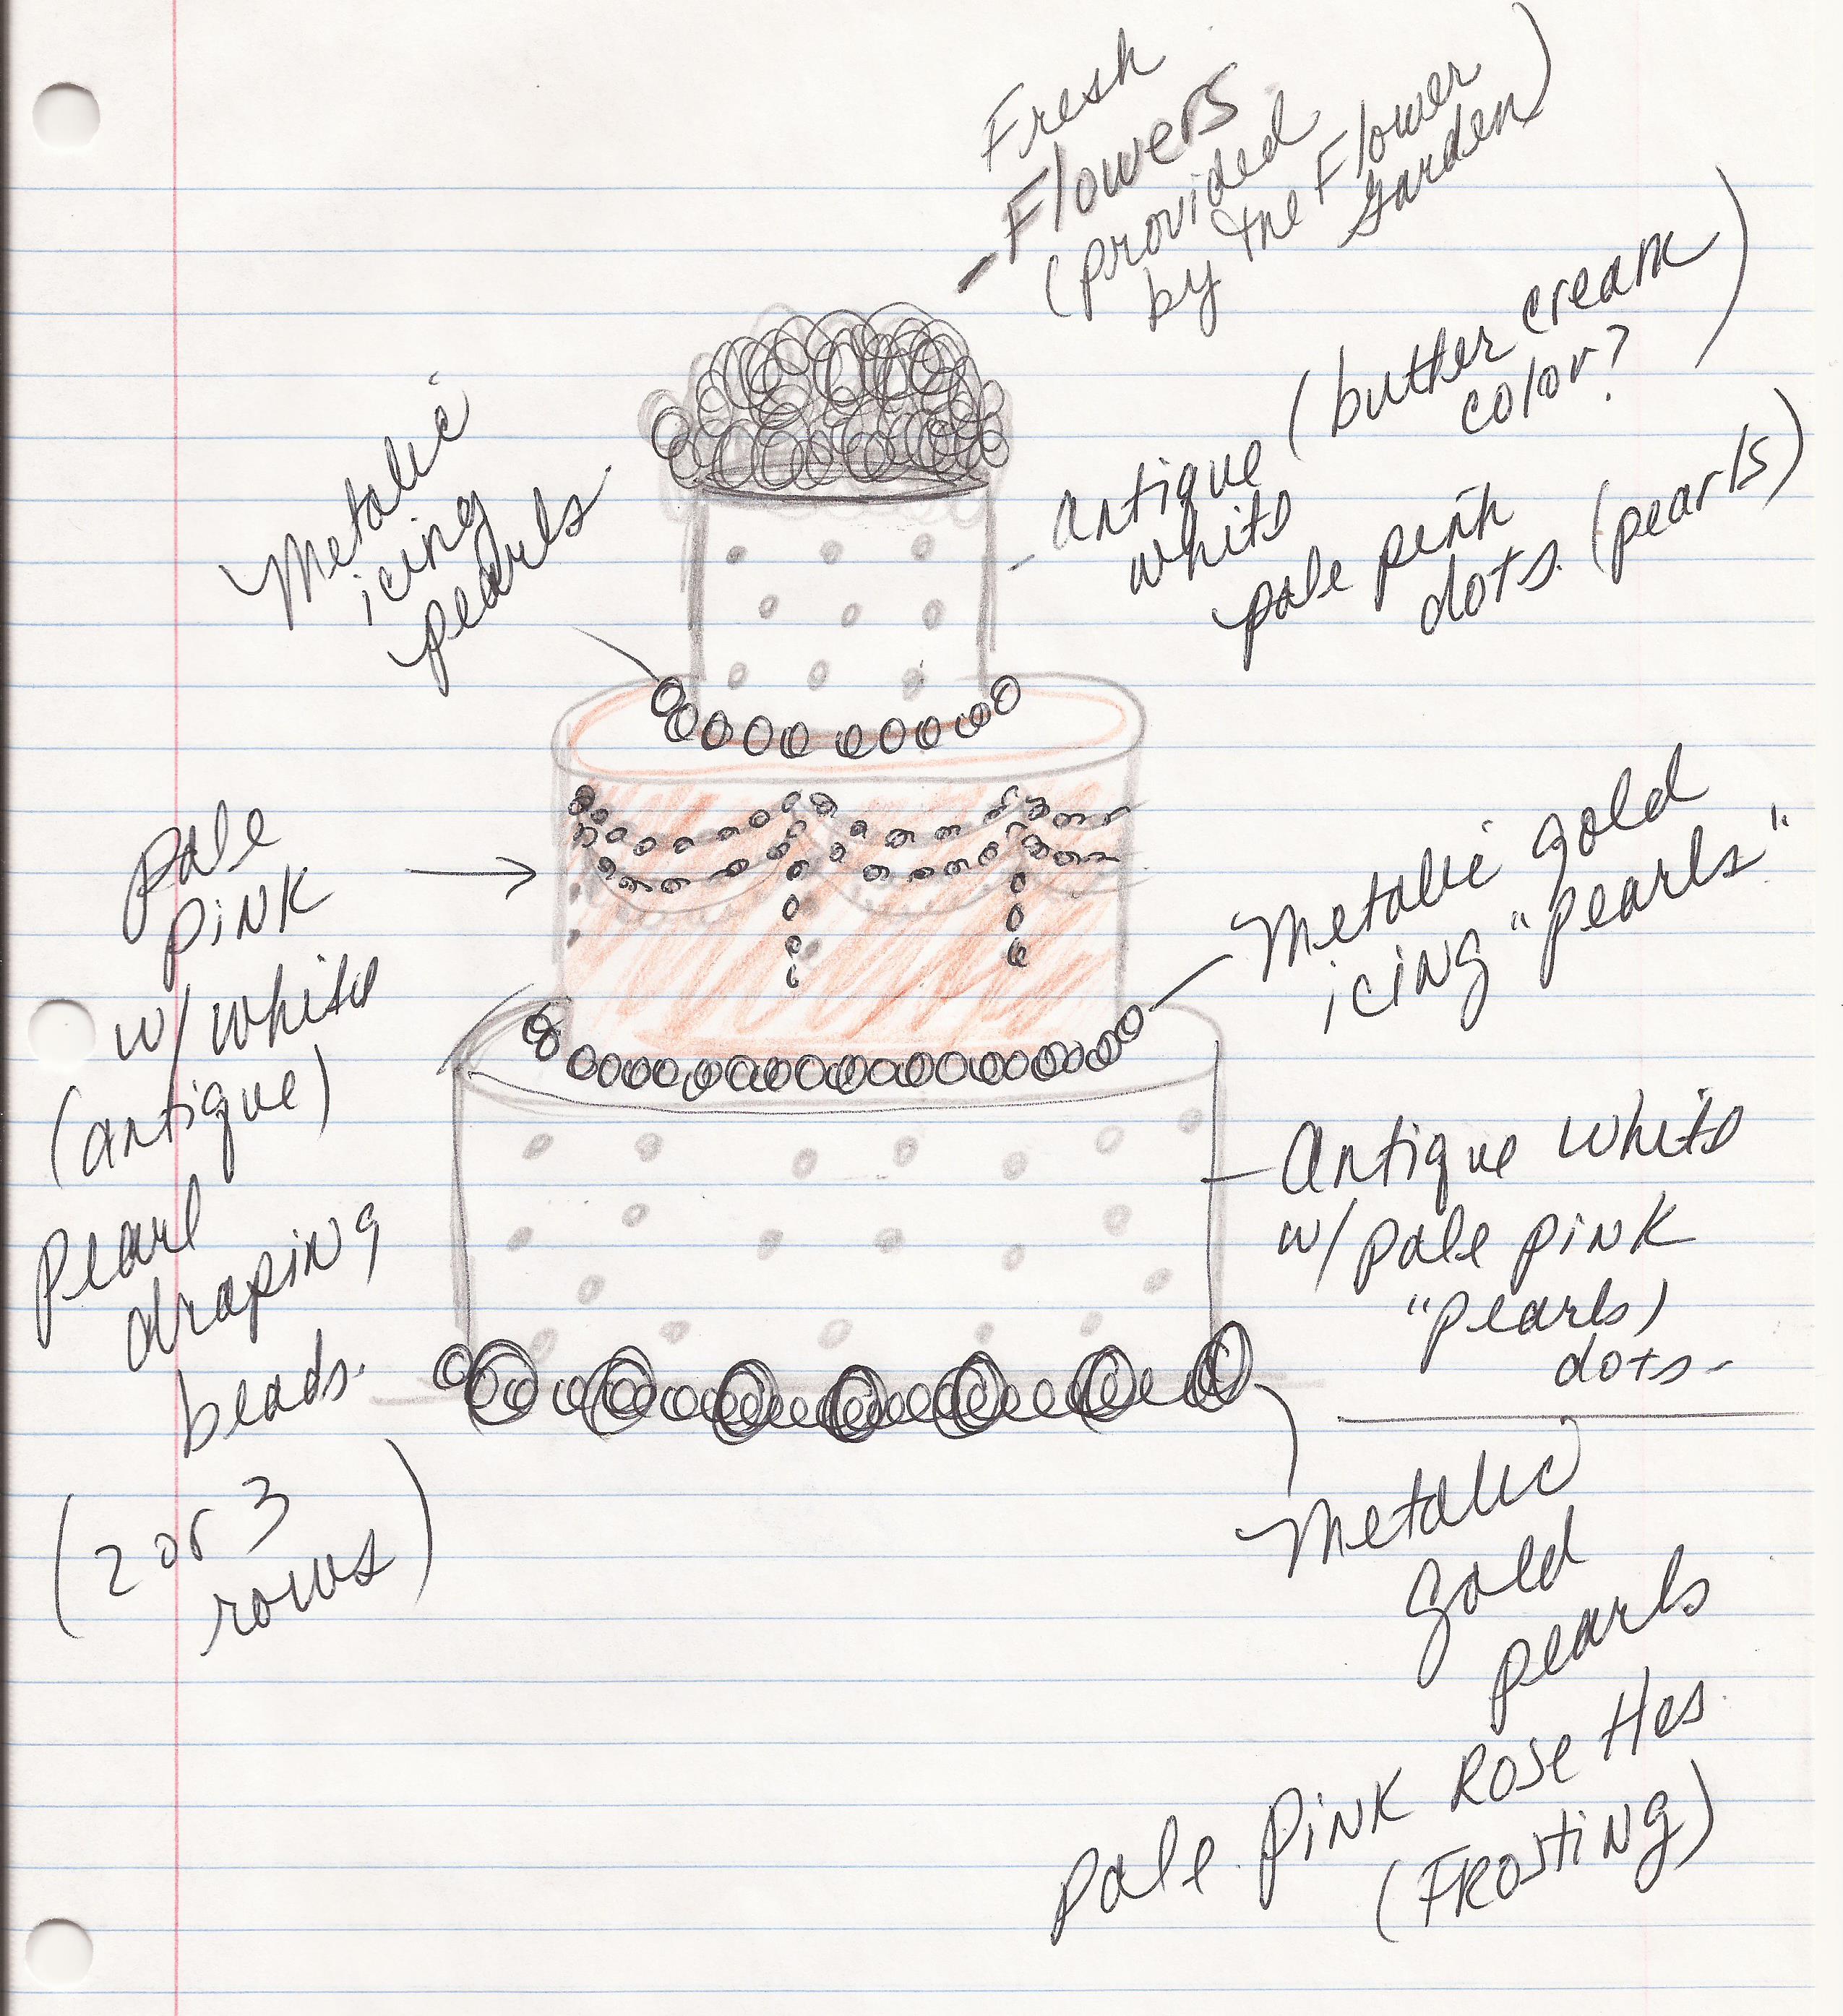 Fresh
Flowers
(provided
by the Flower
Garden)
Metalic
icing
pearls
antique (butter cream
white color?)
pale pink
dots. (pearls)
pale
pink
w/ white
(antique)
pearl
draping
beads.
(2 or 3
rows)
Metalic gold
icing "pearls"
Antique white
w/ pale pink
"pearls)
dots-
Metalic
gold
pearls
pale pink Rosettes
(FROSTING)